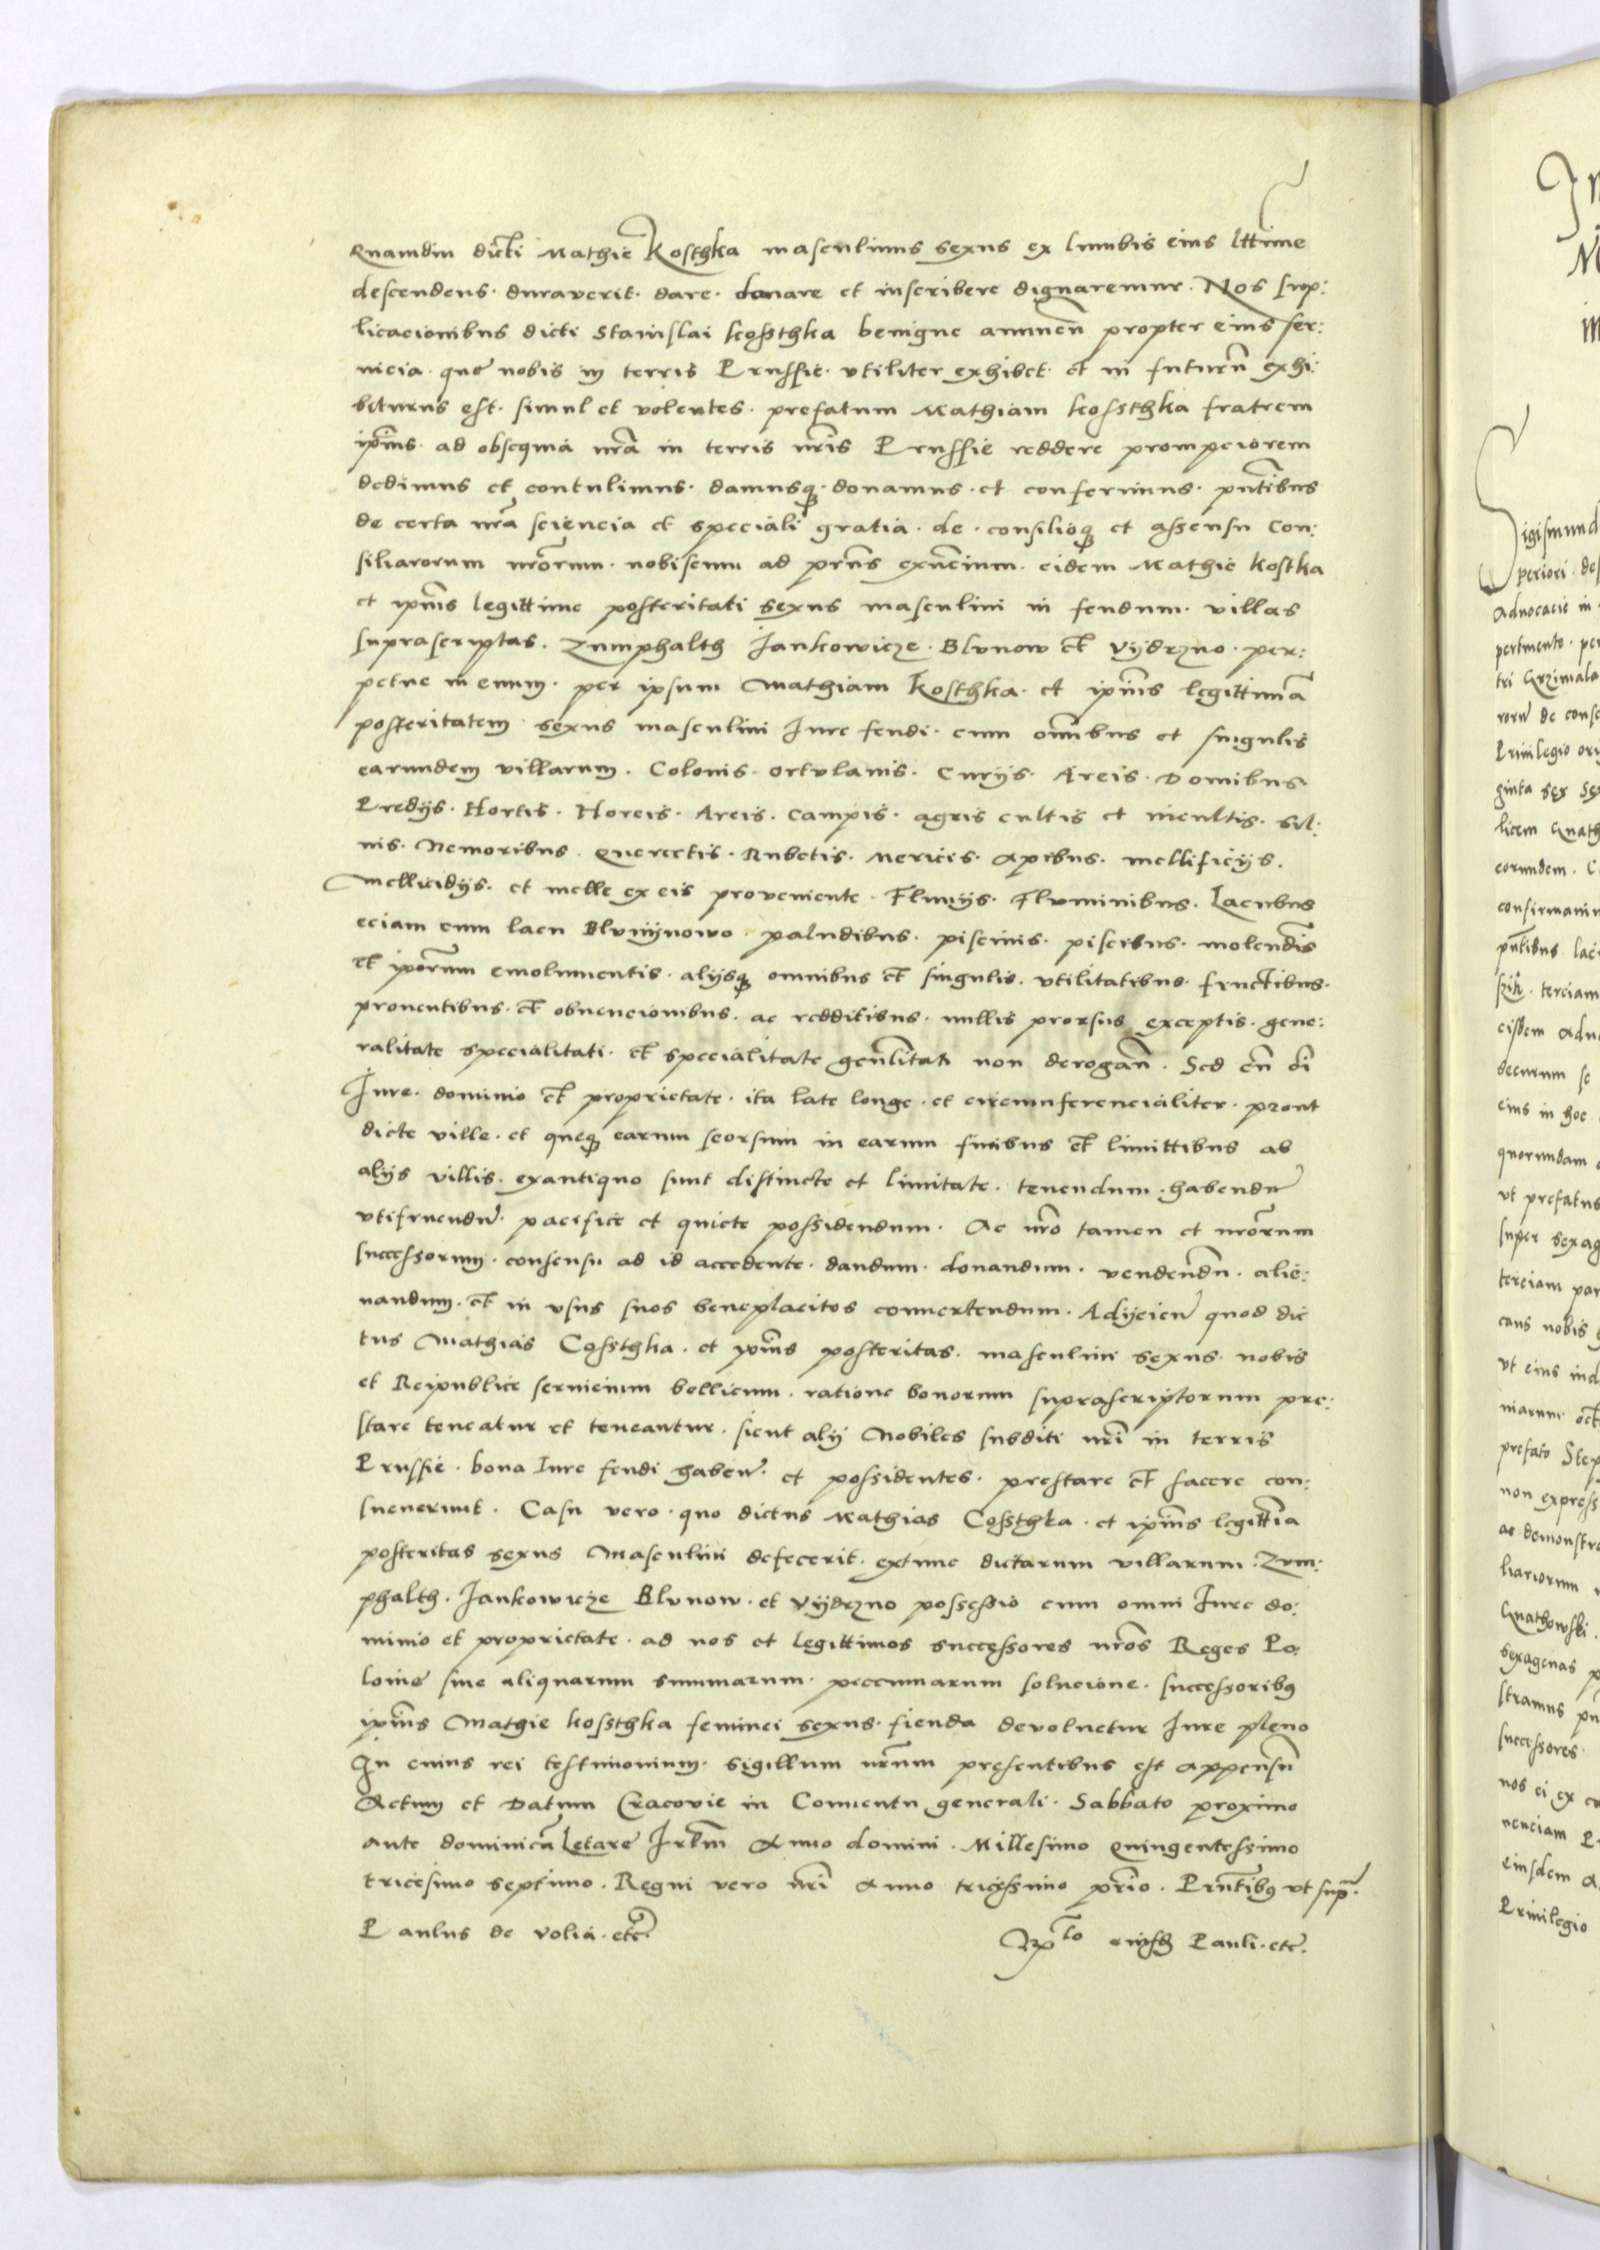 Quamdiu dicti Mathie Kosthka masculinus sexus ex lumbis eius lttime
descendens. duraverit. dare. donare et inscribere dignaremur. Nos sup:
licacionibus dicti Stanislai kossthka benigne annuen̄ propter eius ser:
uicia. que nobis in terris Prussie. vtiliter exhibet. et in futurū exhi:
biturus est. simul et volentes. prefatum Mathiam kossthka fratrem
ip̄ius. ad obsequia nr̄a in terris nr̄is Prussie reddere prompciorem
dedimus et contulimus. damusq; donamus. et conferimus. pn̄tibus
de certa nr̄a sciencia et speciali gratia. de. consilioq; et assensu Con:
siliarorum nr̄orum. nobiscum ad pr̄ns exn̄cium. eidem Mathie kostka
et ip̄ius legittime posteritati sexus masculini in feudum. villas
suprascriptas. Zumphalth Jankowicze. Blvnow et Vydrzno. per:
petue in euum. per ipsum Mathiam kosthka. et ip̄ius legittimā
posteritatem sexus masculini Iure feudi. cum om̄ibus et singulis
earundem villarum. Colonis. ortulanis. Curijs. Areis. Domibus.
Predijs. Hortis. Horeis. Areis. Campis. agris cultis et incultis. Sil:
uis. Nemoribus. Quercetis. Rubetis. Mericis. Apibus. mellificijs.
Mellicidijs. et melle ex eis proveniente. Fluuijs. Fluminibus. Lacubus
eciam cum lacu Blvmynowo paludibus. piscinis. piscibus. molend̄is
et ip̄orum emolumentis. alijsq; omnibus et singulis. vtilitatibus. fructibus.
prouentibus. et obuencionibus. ac redditibus. nullis prorsus exceptis. gene:
ralitate specialitati. et specialitate gen̄litati non derogan̄. Sed cū oī
Iure. dominio et proprietate. ita late longe. et circumferencialiter. prout
dicte ville. et queq; earum seorsum in earum finibus et limittibus ab
alijs villis. exantiquo sunt distincte et limitate. tenendum. habendū
vtifruendū. pacifice et quiete possidendum. Ac nr̄o tamen et nr̄orum
successorum. consensu ad id accedente. dandum. donandum. vendendū. alie:
nandum. et in vsus suos beneplacitos conuertendum. Adijcien̄ quod dic
tus Mathias Cossthka. et ip̄ius posteritas. masculini sexus. nobis
et Reipublice seruicium bellicum. ratione bonorum suprascriptorum pre:
stare teneatur et teneantur. sicut alij Nobiles subditi nr̄i in terris
Prussie. bona Iure feudi haben̄. et possidentes. prestare et facere con:
sueuerunt. Casu vero. quo dictus Mathias Cossthka. et ip̄ius legittīa
posteritas sexus Masculini defecerit. extunc dictarum villarum. Zum:
phalth. Jankowicze Blvnow. et Vydrzno possessio cum omni Iure do:
minio et proprietate. ad nos et legittimos successores nr̄os Reges Po:
lonie sine aliquarum summarum. peccuniarum solucione. successoribus
ip̄ius Mathie kossthka feminei sexus. fienda devoluetur Iure pleno
In cuius rei testimonium. sigillum nr̄um presentibus est appensū
Actum et Datum Cracovie in Conuentu generali. Sabbato proximo
ante dominicā Letare Irl̄m Anno domini. Millesimo Quingentessimo
tricesimo septimo. Regni vero nr̄i Anno tricessimo pr̄io. Prn̄tibus vt supra.
Paulus de volia. etc̄.
Rp̄to eiusdē Pauli. etc̄.